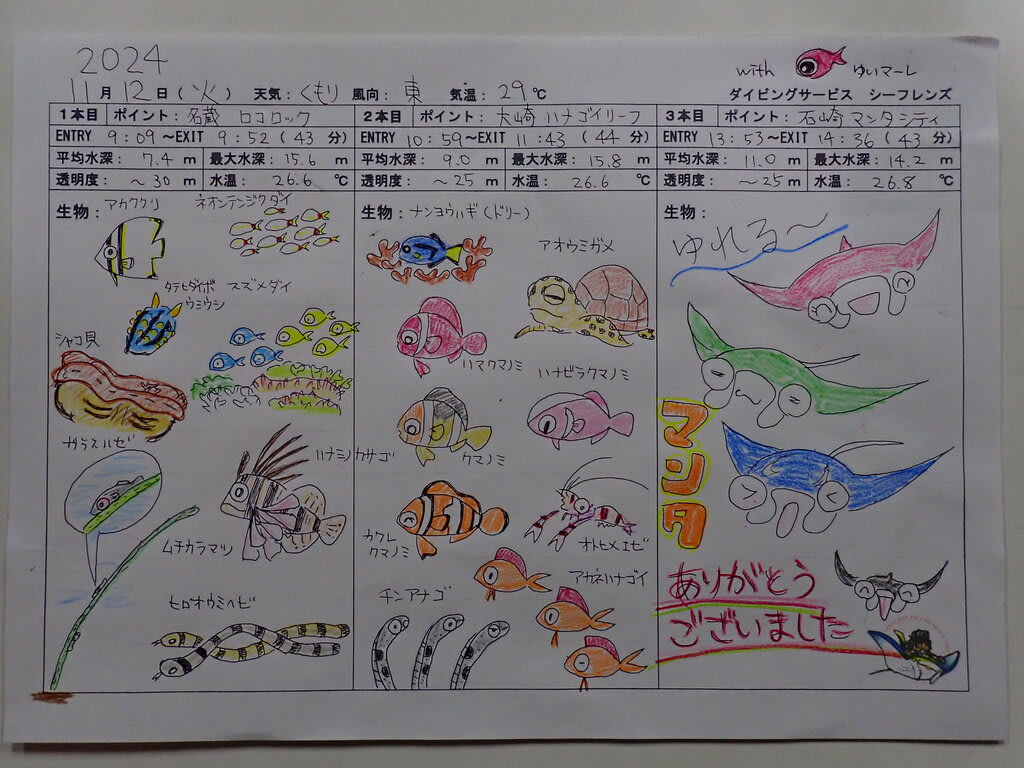 2024
11月12日(火) 天気:くもり 風向:東 気温:29℃
with ゆいマーレ
ダイビングサービス シーフレンズ
1本目 ポイント:名蔵 ロコロック
ENTRY 9:09~EXIT 9:52(43分)
平均水深:7.4m 最大水深:15.6m
透明度:~30m 水温:26.6℃
生物:アカククリ
ネオンテンジクダイ
タテヒダイボ
ウミウシ
スズメダイ
シャコ貝
ガラスハゼ
ハナミノカサゴ
ムチカラマツ
ヒロオウミヘビ
2本目 ポイント:大崎 ハナゴイリーフ
ENTRY 10:59~EXIT 11:43(44分)
平均水深:9.0m 最大水深:15.8m
透明度:~25m 水温:26.6℃
生物:ナンヨウハギ(ドリー)
アオウミガメ
ハマクマノミ
ハナビラクマノミ
クマノミ
カクレ
クマノミ
オトヒメエビ
アカネハナゴイ
チンアナゴ
3本目 ポイント:石崎 マンタシティ
ENTRY 13:53~EXIT 14:36(43分)
平均水深:11.0m 最大水深:14.2m
透明度:~25m 水温:26.8℃
生物:
ゆれる~
マンタ
ありがとう
ございました